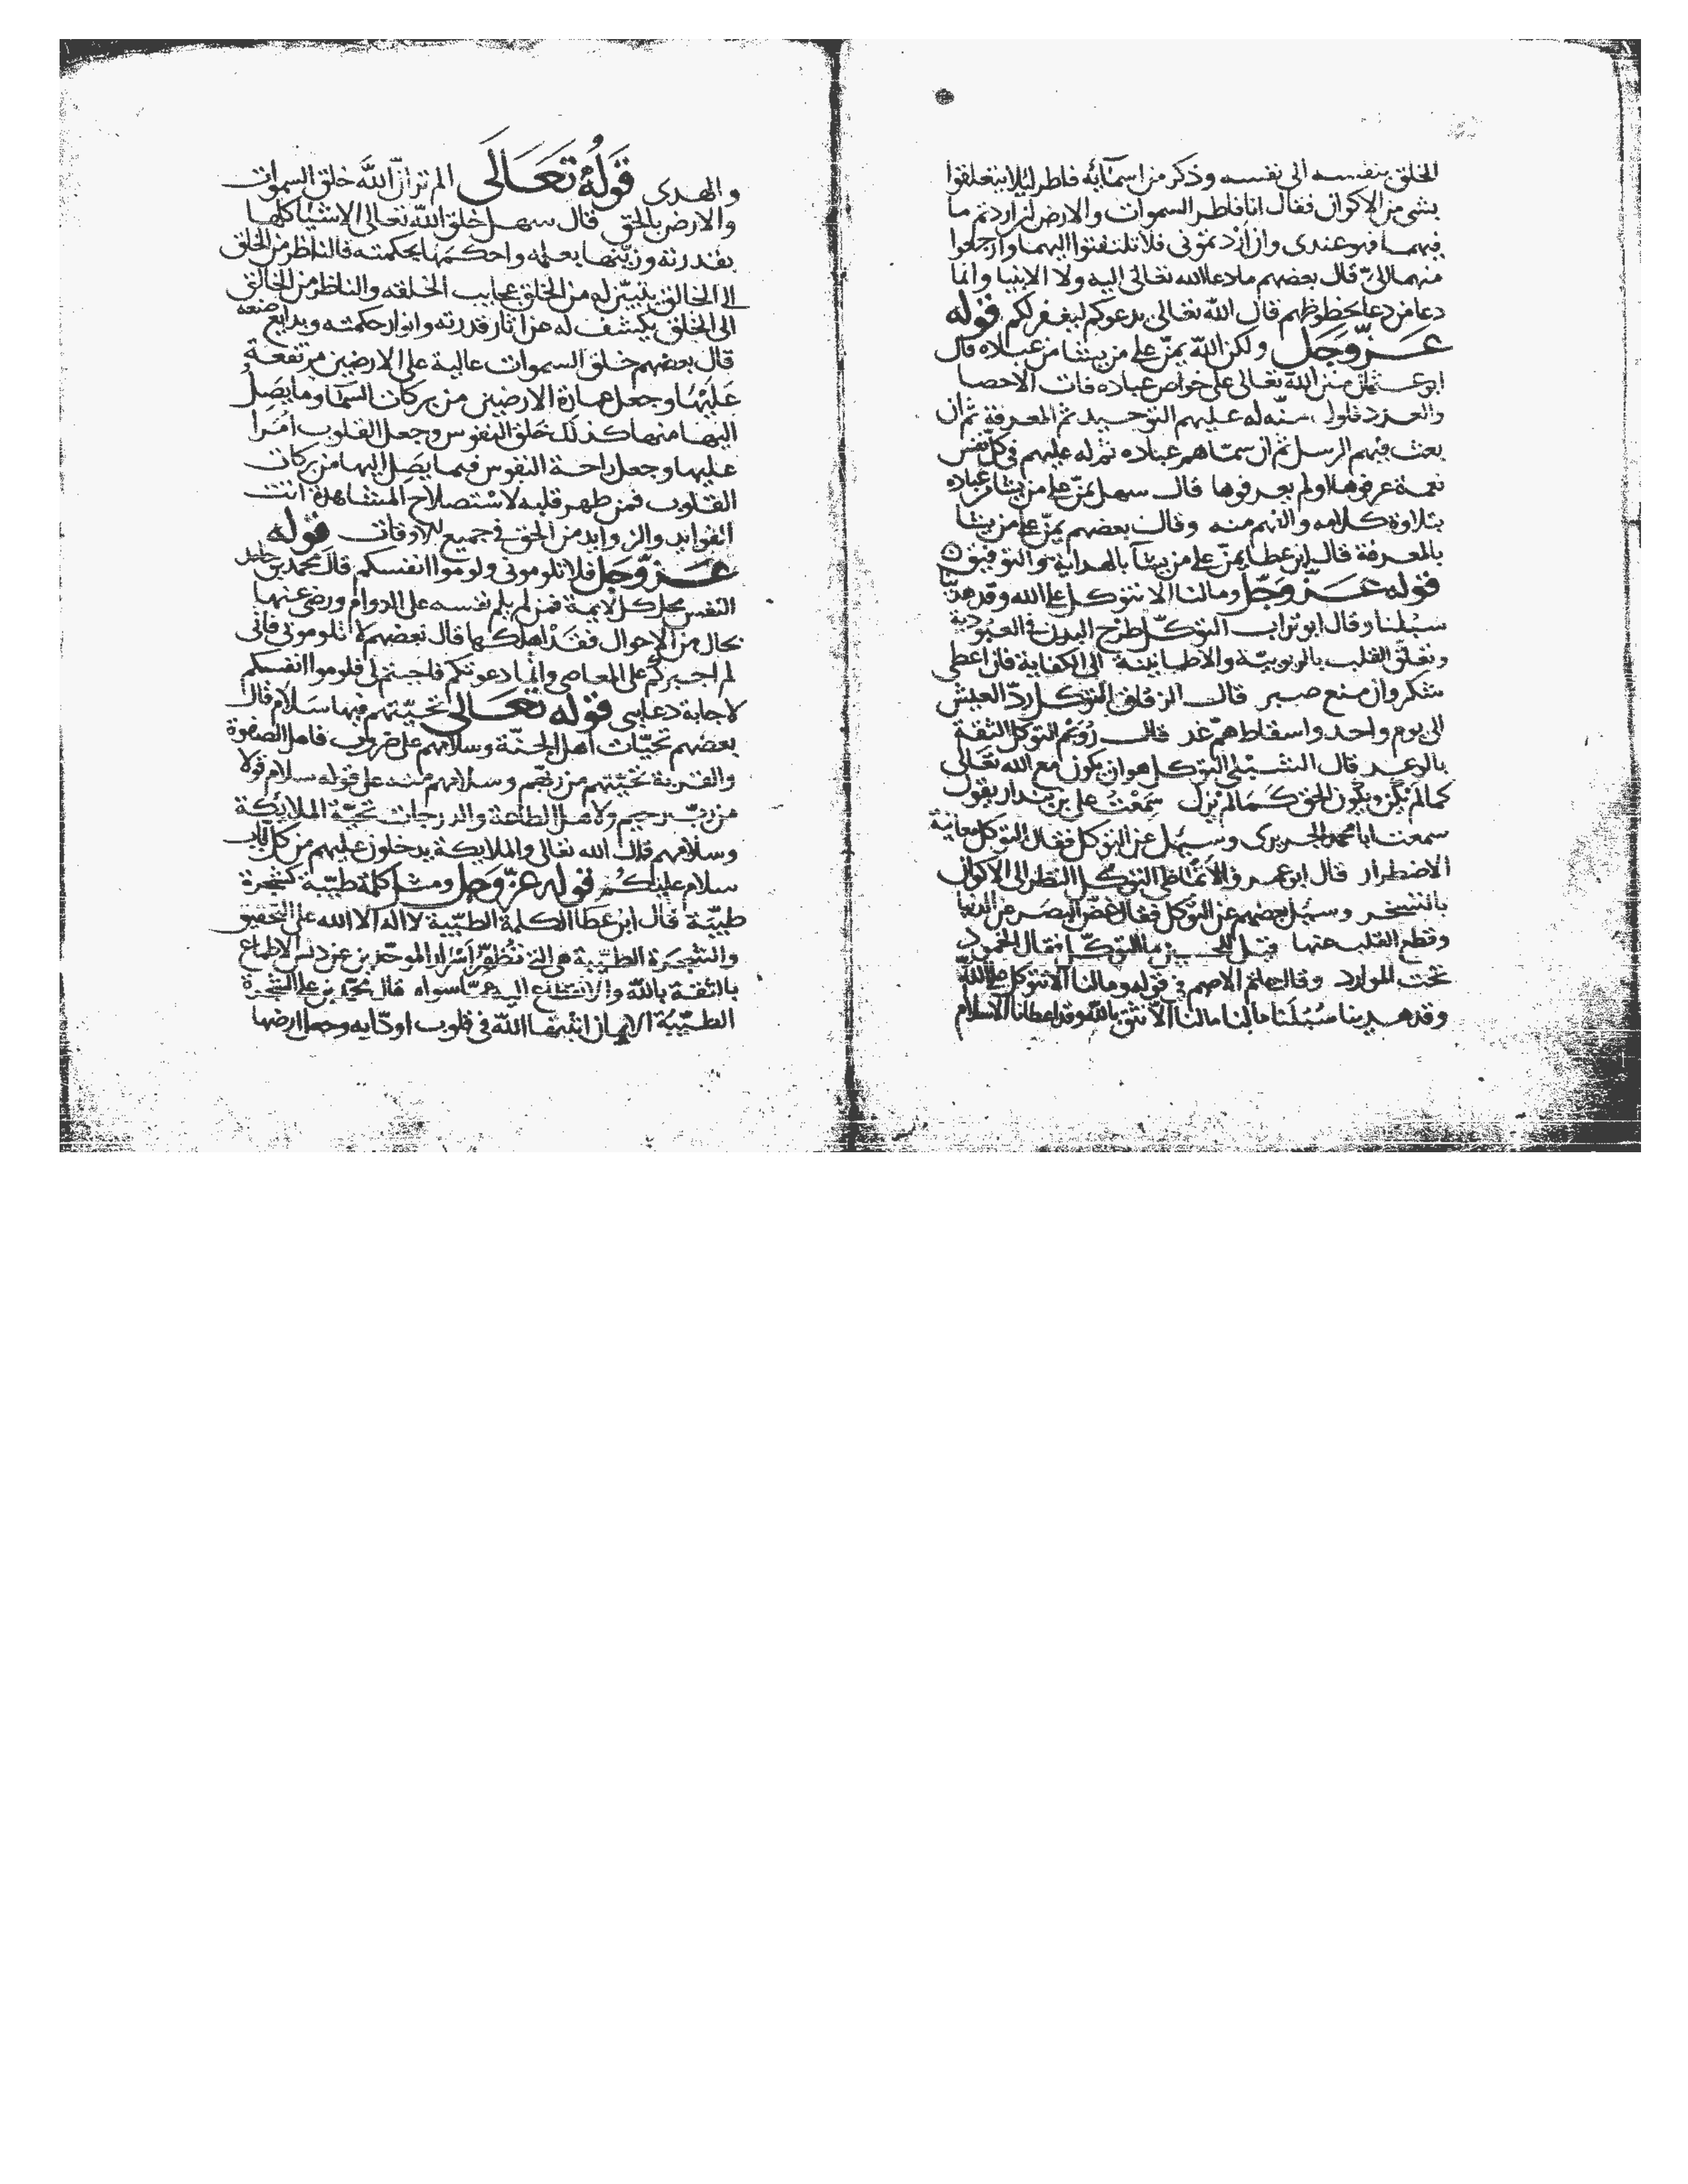 الخلق بنفسه الى نفسه وذكر من اسمآيه فاطر ليلا يتعلقوا
بشى من الاكوان فقال انا فاطر السموات والارض ان اردتم ما
فيهما فهو عندى وان اردتمونى فلا تلتفتوا اليهما وارجعوا
منهما الىّ قال بعضهم ما دعا الله تعالى اليه ولا الانبيا وانما
دعا من دعا لحظوظهم قال الله تعالى يدعوكم ليغفر لكم قوله
عز وجل ولكن الله يمنّ على من يشا من عباده قال
ابو عثمان منن الله تعالى على خواص عباده فات الاحصا
والعدد فاول منّه له عليهم التوحيد ثم المعرفة ثم ان
بعث فيهم الرسل ثم ان سمّاهم عباده ثم له عليهم فى كل نفس
نعمة عرفوها او لم يعرفوها قال سهل يمنّ على من يشا من عباده
بتلاوة كلامه والفهم منه وقال بعضهم يمنّ على من يشا
بالمعرفة قال ابن عطا يمنّ على من يشآ بالهداية والتوفيق
قوله عز وجل وما لنا الا نتوكل على الله وقد هدنا
سبلنا قال ابو تراب التوكّل طرح البدن فى العبودية
وتعلّق القلب بالربوبيّة والاطمانينة الى الكفاية فان اعطى
شكر وان منع صبر قال الزقاق التوكل ردّ العيش
الى يوم واحد واسقاط همّ غد قال رُوَيْم التوكل الثقة
بالوعد قال الشبلى التوكل هو ان يكون مع الله تعالى
كما لم يكن ويكون الحق كَمَا لم يزل سَمِعْتُ على بن بندار يقول
سمعت ابا محمد الجريرى وسيُل عن التوكل فقال التوكل معاينة
الاضطرار قال ابو عمرو الأنماطى التوكل النظر الى الاكوان
بالتسخر وسيُل بعضهم عن التوكل فقال غضّ البصر عن الدنيا
وقطع القلب عنها قيل للحسين ما التوكّل فقال الخمود
تحت الموارد وقال حاتم الاصم فى قوله وما لنا الا نتوكل على الله
وقد هدينا سُبُلَنا ما لنا ما لنا الا نثق بالله وقد اعطانا الاسلام
والهدى قَولُهُ تَعَالَى الم تر انّ اللّه خلق السموات
والارض بالحق قال سهل خلق الله تعالى الاشيا كلها
بقدرته وزيّنها بعلمه واحكمها بحكمته فالناظر من الخلق
الى الخالق يتبيّن له من الخلق عجايب الخلقه والناظر من الخالق
الى الخلق يكشف له عن اثار قدرته وانوار حكمته وبدايع صنعه
قال بعضهم خلق السموات عالية على الارضين مرتفعة
عَلَيْهَا وجعل عمارة الارضين من بركات السمآ وما يَصِلُ
اليها منها كذلك خلق النفوس وجعل القلوب اُمَرا
عليها وجعل راحة النفوس فيما يَصِل اليها من بركات
القلوب فمن طهر قلبه لاستصلاح المشاهدة اتت
الفوايد والزوايد من الحق فى جميع الاوقات قوله
عز وجل فلا تلومونى ولوموا انفسكم قال محمد بن حامد
النفس محل كل لايمة فمن لم يلم نفسه على الدوام ورضى عنها
بحال من الاحوال فقد اهلكها قال بعضهم لا تلومونى فانى
لم اجبركم على المعاصى وانما دعوتكم فاجبتم لى فلوموا انفسكم
لاجابة دعايى قوله تعالى تحيّتهم فيها سَلام قال
بعضهم تحيّات اهل الجنّة وسلامهم على ضروب فاهل الصفوة
والقربة تحيّتهم من ربّهم وسلامهم منه على قوله سلام قولا
من ربّ رحيم ولاهل الطاعة والدرجات تحيّة الملايكة
وسلامهم قال الله تعالى والملايكة يدخلون عليهم من كل باب
سلام عليكُم قوله عزّ وجل ومثل كلمة طيّبة كشجرة
طيبّة قال ابن عطا الكلمة الطيّبة لا اله الا الله على التحقيق
والشجرة الطيّبة هى التى تُطهّر أسْرار الموحّدين عن دنس الاطماع
بالثقة بالله والانقطاع اليه عمّا سواه قال محمّد بن على الشجرة
الطيّبة الايمان انبتها الله فى قلوب اودّايه وجعل ارضها